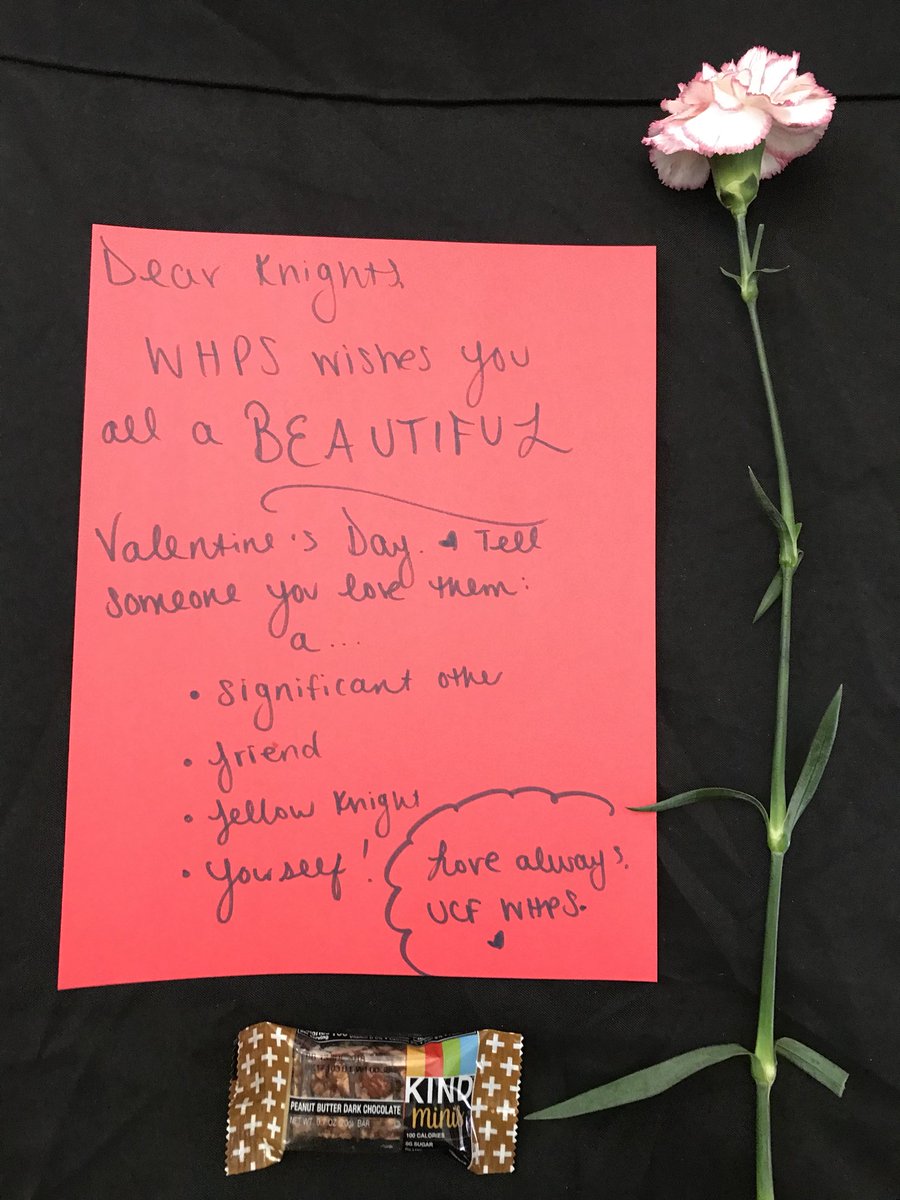 Dear Knights,
WHPS wishes you
all a BEAUTIFUL
Valentine's Day. ♥ Tell
someone you love them:
a...
• significant other
• friend
• fellow Knight
• yourself!
Love always,
UCF WHPS.
♥
KIND
minis
PEANUT BUTTER DARK CHOCOLATE
NET WT. 0.7 OZ (20g) BAR
100 CALORIES